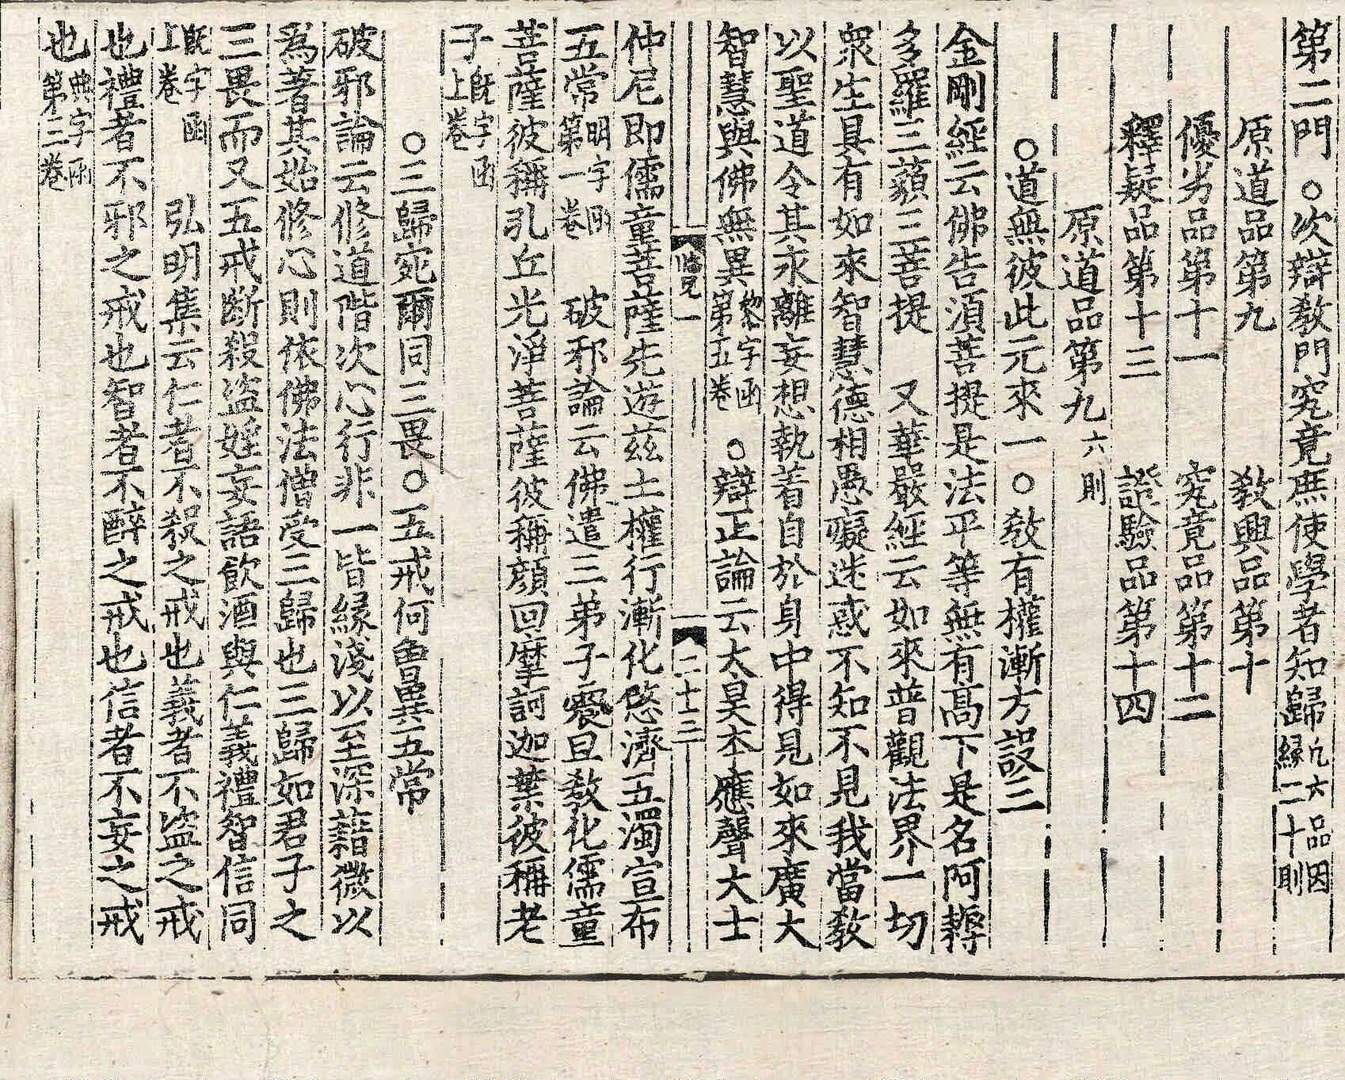 第二門　○次辯敎門究竟庶使學者知歸凡六品因緣二十則
原道品第九　敎興品第十
優劣品第十一　究竟品第十二
釋疑品第十三　證驗品第十四
原道品第九六則
○道無彼此元來一　○敎有權漸方設三
金剛經云佛告須菩提是法平等無有高下是名阿耨
多羅三藐三菩提　又華嚴經云如來普觀法界一切
衆生具有如來智慧德相愚癡迷惑不知不見我當敎
以聖道令其永離妄想執着自於身中得見如來廣大
智慧與佛無異黎字函第五卷　○辯正論云太昊本應聲大士
二十三
仲尼即儒童菩薩先遊茲土權行漸化愍濟五濁宣布
五常明字函第一卷　破邪論云佛遣三弟子震旦敎化儒童
菩薩彼稱孔丘光淨菩薩彼稱顔回摩訶迦葉彼稱老
子旣字函上卷
○三歸宛爾同三畏○五戒何曾異五常
破邪論云修道階次心行非一皆緣淺以至深藉微以
爲著其始修心則依佛法僧受三歸也三歸如君子之
三畏而又五戒斷殺盜婬妄語飮酒與仁義禮智信同
旣字函上卷　弘明集云仁者不殺之戒也義者不盜之戒
也禮者不邪之戒也智者不醉之戒也信者不妄之戒
也典字函第三卷